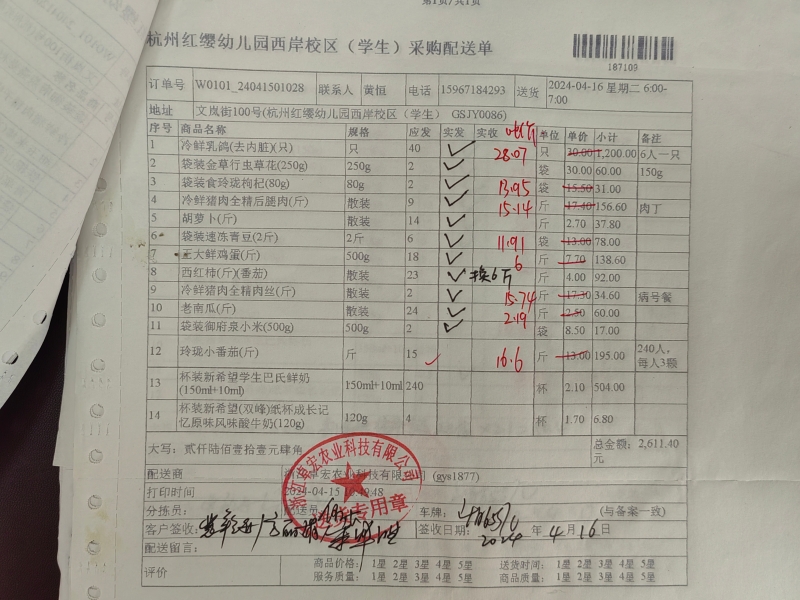 第1页/共1页
杭州红缨幼儿园西岸校区（学生）采购配送单
187109
订单号 W0101_24041501028 联系人 黄恒 电话 15967184293 送货 2024-04-16 星期二 6:00-7:00
地址 文岚街100号(杭州红缨幼儿园西岸校区（学生） GSJY0086)
序号 商品名称 规格 应发 实发 实收 单位 单价 小计 备注
1 冷鲜乳鸽(去内脏)(只) 只 40 ✓ 28.07 只 30.00 1,200.00 6人一只
2 袋装金草行虫草花(250g) 250g 2 ✓ 袋 30.00 60.00 150g
3 袋装食玲珑枸杞(80g) 80g 2 ✓ 13.95 袋 15.50 31.00
4 冷鲜猪肉全精后腿肉(斤) 散装 9 ✓ 15.14 斤 17.40 156.60 肉丁
5 胡萝卜(斤) 散装 14 ✓ 斤 2.70 37.80
6 袋装速冻青豆(2斤) 2斤 6 ✓ 11.91 袋 13.00 78.00
7 王大鲜鸡蛋(斤) 500g 18 ✓ 6 斤 7.70 138.60
8 西红柿(斤)(番茄) 散装 23 ✓ 换6斤 斤 4.00 92.00
9 冷鲜猪肉全精肉丝(斤) 散装 2 ✓ 15.74 斤 17.30 34.60 病号餐
10 老南瓜(斤) 散装 24 ✓ 2.19 斤 2.50 60.00
11 袋装御府泉小米(500g) 500g 2 ✓ 袋 8.50 17.00
12 玲珑小番茄(斤) 斤 15 ✓ 16.6 斤 13.00 195.00 240人，每人3颗
13 杯装新希望学生巴氏鲜奶(150ml+10ml) 150ml+10ml 240 杯 2.10 504.00
14 杯装新希望(双峰)纸杯成长记忆原味风味酸牛奶(120g) 120g 4 杯 1.70 6.80
大写：贰仟陆佰壹拾壹元肆角 总金额：2,611.40元
配送商 宏农业科技有限公司 (gys1877)
打印时间 2024-04-15
浙江卓宏农业科技有限公司
专用章
分拣员： 配送员 车牌： (与备案一致)
客户签收： 签收日期： 2024 年 4 月 16 日
配送留言：
评价 商品价格： 1星 2星 3星 4星 5星 送货时间： 1星 2星 3星 4星 5星
服务质量： 1星 2星 3星 4星 5星 商品质量： 1星 2星 3星 4星 5星